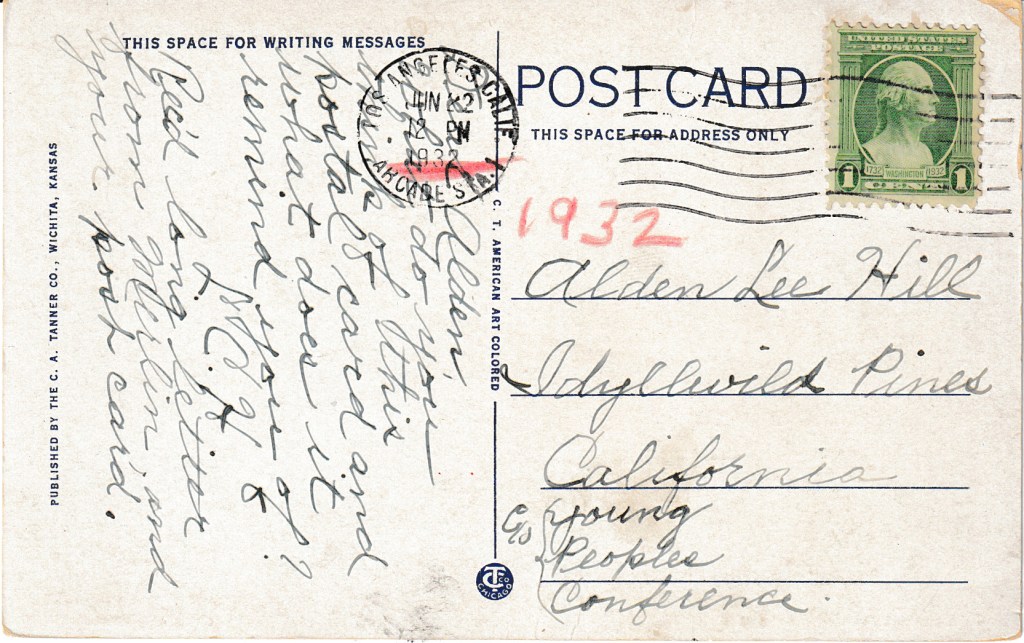 THIS SPACE FOR WRITING MESSAGES
Alden,
do you
think of this
postal card and
what does it
remind you of?
Rec'd long letter
from Merlin, and
your post card.
PUBLISHED BY THE C. A. TANNER CO., WICHITA, KANSAS
C. T. AMERICAN ART COLORED
LOS ANGELES, CALIF.
JUN
12 PM
1932
ARCADE STA. 1
POST CARD
THIS SPACE FOR ADDRESS ONLY
UNITED STATES
POSTAGE
1732 WASHINGTON 1932
1 CENT 1
1932
Alden Lee Hill
Idyllwild Pines
California
c/o Young
Peoples
Conference.
CT CO
CHICAGO